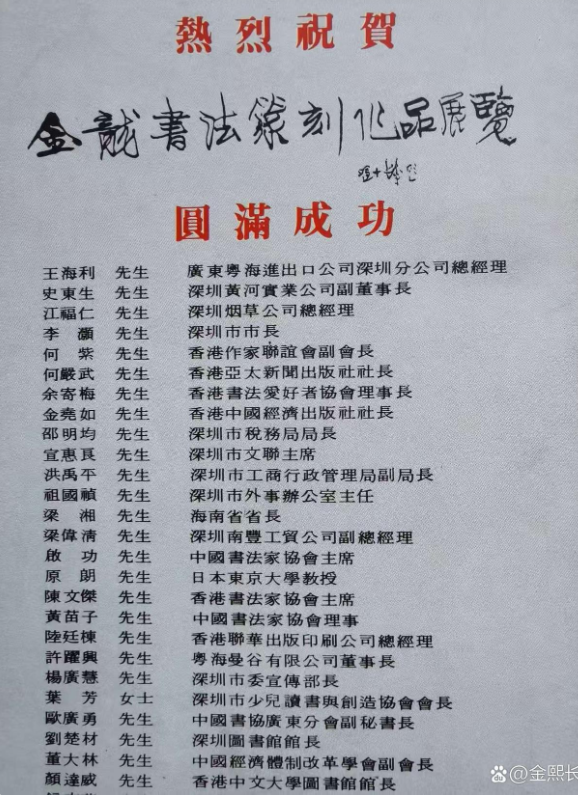 熱烈祝賀
金龍書法篆刻作品展覽
圓滿成功
王海利 先生 廣東粵海進出口公司深圳分公司總經理
史東生 先生 深圳黃河實業公司副董事長
江福仁 先生 深圳烟草公司總經理
李灝 先生 深圳市市長
何紫 先生 香港作家聯誼會副會長
何嚴武 先生 香港亞太新聞出版社社長
余寄梅 先生 香港書法愛好者協會理事長
金堯如 先生 香港中國經濟出版社社長
邵明均 先生 深圳市稅務局局長
宣惠良 先生 深圳市文聯主席
洪禹平 先生 深圳市工商行政管理局副局長
祖國禎 先生 深圳市外事辦公室主任
梁湘 先生 海南省省長
梁偉清 先生 深圳南豐工貿公司副總經理
啟功 先生 中國書法家協會主席
原朗 先生 日本東京大學教授
陳文傑 先生 香港書法家協會主席
黃苗子 先生 中國書法家協會理事
陸廷棟 先生 香港聯華出版印刷公司總經理
許躍興 先生 粵海曼谷有限公司董事長
楊廣慧 先生 深圳市委宣傳部長
葉芳 女士 深圳市少兒讀書與創造協會會長
歐廣勇 先生 中國書協廣東分會副秘書長
劉楚材 先生 深圳圖書館館長
董大林 先生 中國經濟體制改革學會副會長
顏達威 先生 香港中文大學圖書館館長
@金熙长